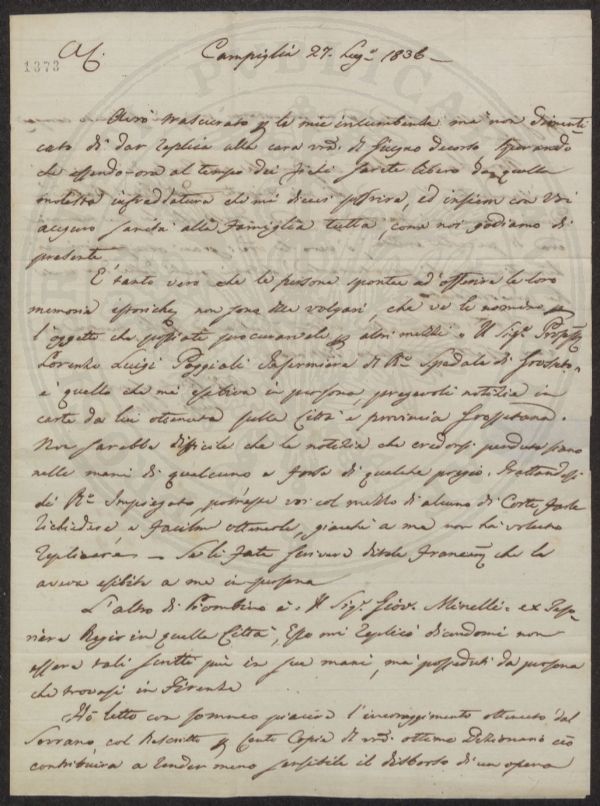 1373 AC. Campiglia 27. Lug.º 1836 —
Avrò trascurato p le mie incumbenze ma non dimenti
cato di dar replica alla cara vrã. di Giugno decorso sperando
che essendo ora al tempo dei fichi sarete libero da quella
molesta infreddatura che mi dicevi soffrire, ed insieme con voi
auguro sanità alla Famiglia tutta, come noi godiamo di
presente
È tanto vero che le persone spontee ad offerire le loro
memorie istoriche, non sono che volgari, che ve le nomino p
l'oggetto che possiate procurarvele p altri mezzi. Il Sig.
Lorenzo Luigi Poggiali Infermiere di R.º Spedale di Grosseto
è quello che mi esibiva in persona pregevoli notizie in
carte da lui ottenute sulla Città e provincia Grossetana.
Non sarebbe difficile che le notizie che credersi perdute siano
nelle mani di qualcuno e forse di qualche pregio. Trattandosi
di R.º Impiegato, potreste voi col mezzo di alcuno di Corte, farle
richiedere e facilm ottenerle, giacchè a me non ha voluto
replicare — Se li fate scrivere ditele Francam che le
aveva esibite a me in persona
L'altro di Piombino è il Sig.e Giov. Minelli ex Teso
riere Regio in quella Città, Esso mi replicò dicendomi non
essere tali scritti più in sue mani, ma posseduti da persona
che trovasi in Firenze
Hò letto con sommo piacere l'incoraggimento ottenuto dal
Sovrano, col Rescritto p Cento Copie di vrõ. ottimo Dizionario ciò
contribuirà a render meno sensibile il disborso di un opera